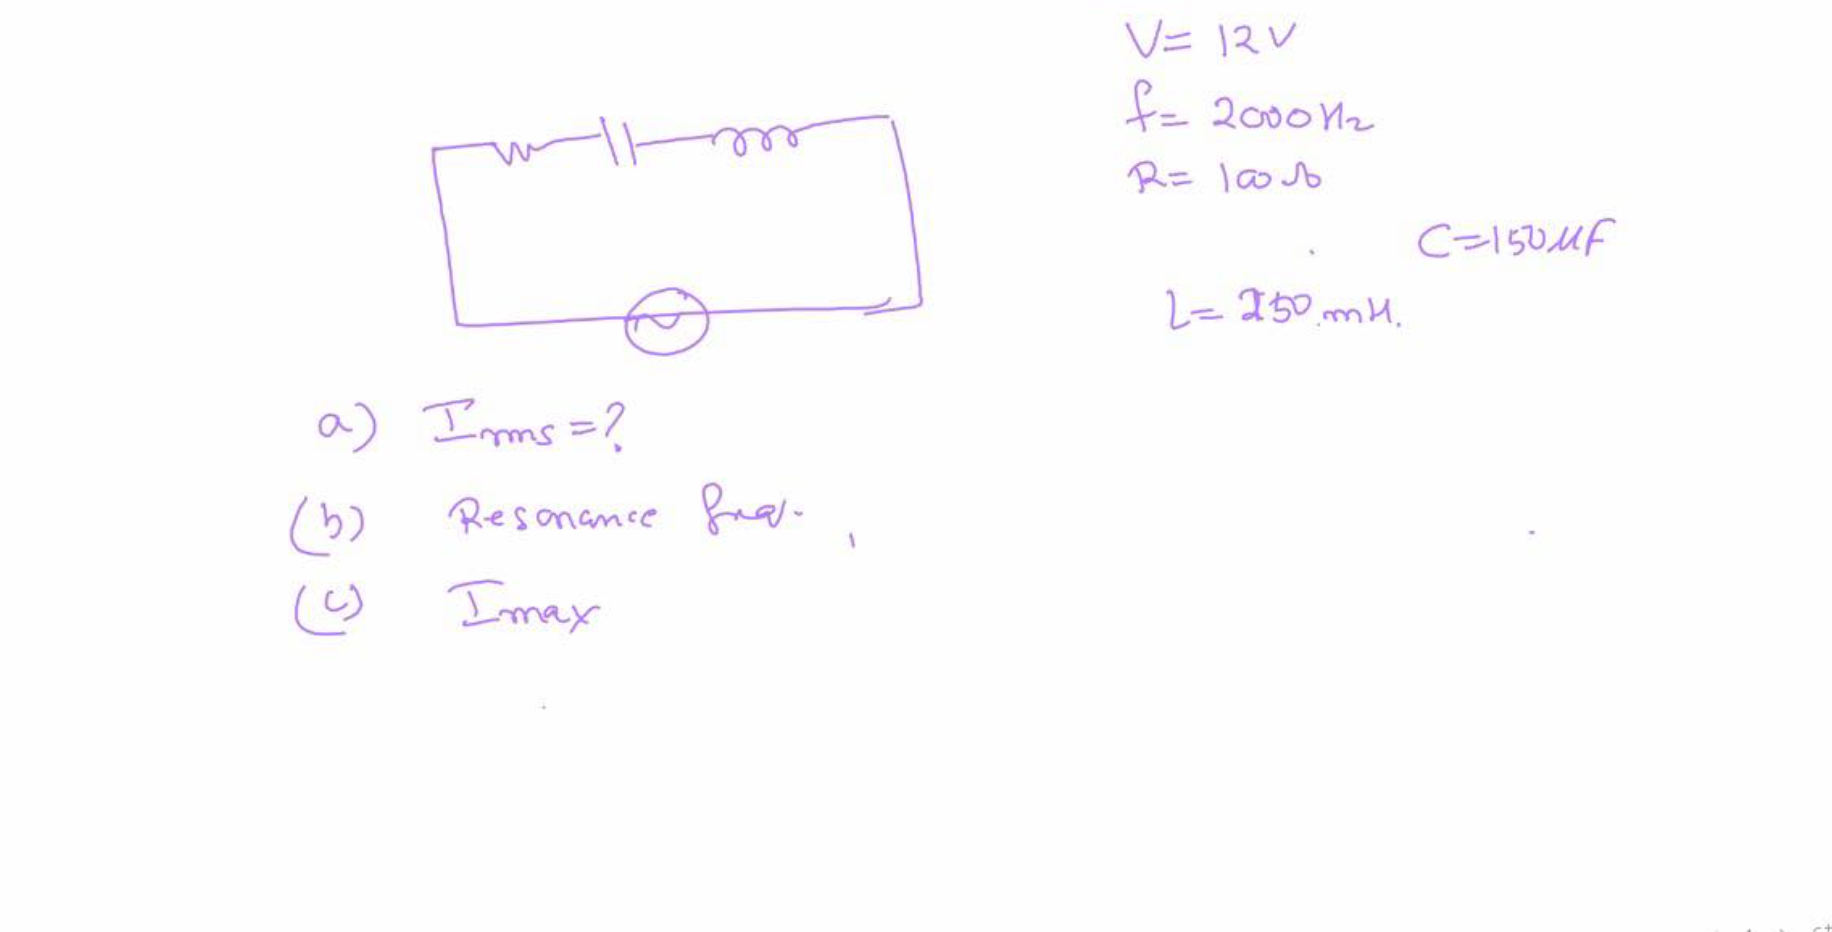 V= 12V
f= 2000Hz
R= 100Ω
C=150μF
L= 250.mH.
a) Irms=?
(b) Resonance freq.
(c) Imax